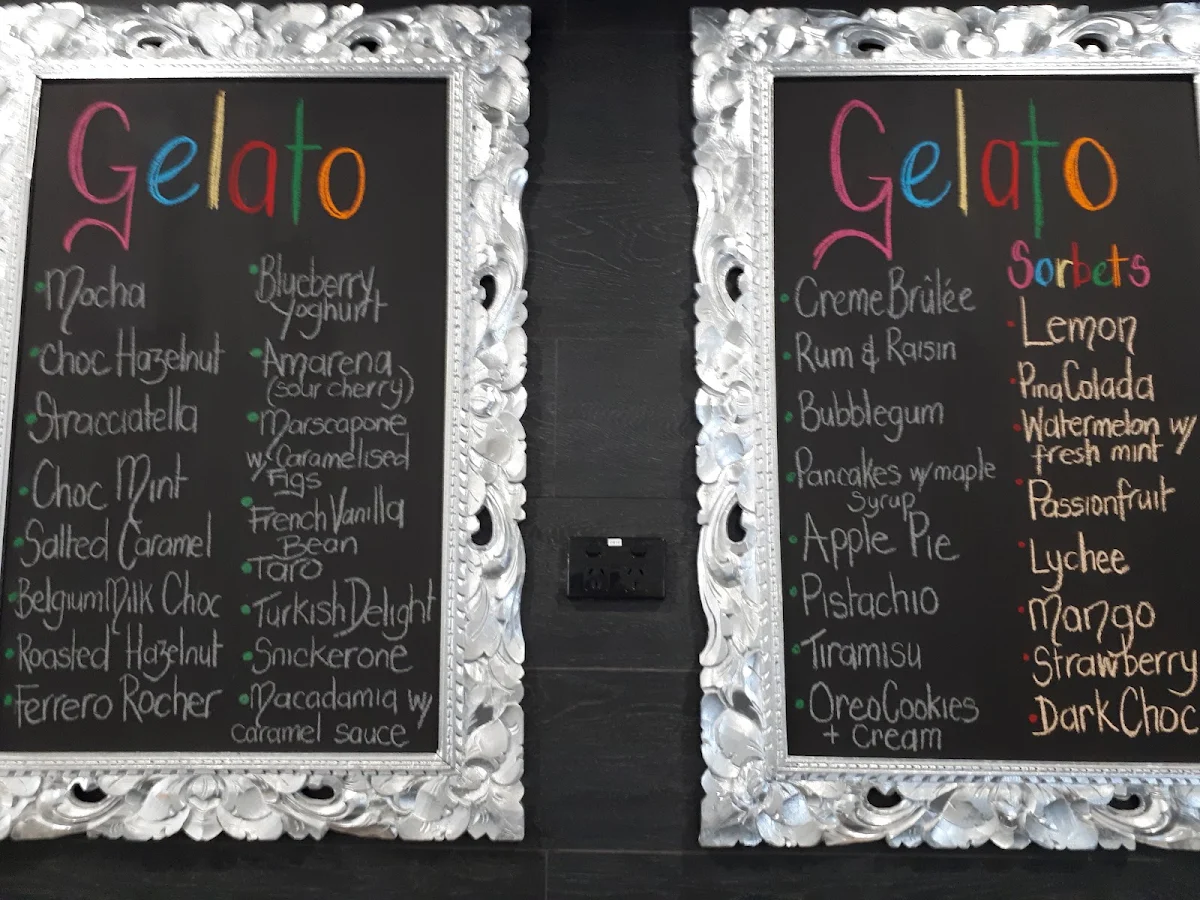 Gelato
Mocha
Choc Hazelnut
Stracciatella
Choc Mint
Salted Caramel
Belgium Milk Choc
Roasted Hazelnut
Ferrero Rocher
Blueberry
Yoghurt
Amarena
(sour cherry)
Marscapone
w/ Caramelised
Figs
French Vanilla
Bean
Taro
Turkish Delight
Snickerone
Macadamia w/
caramel sauce
Gelato
Creme Brûlée
Rum & Raisin
Bubblegum
Pancakes w/ maple
Syrup
Apple Pie
Pistachio
Tiramisu
Oreo Cookies
+ Cream
Sorbets
Lemon
Pina Colada
Watermelon w/
fresh mint
Passionfruit
Lychee
Mango
Strawberry
Dark Choc